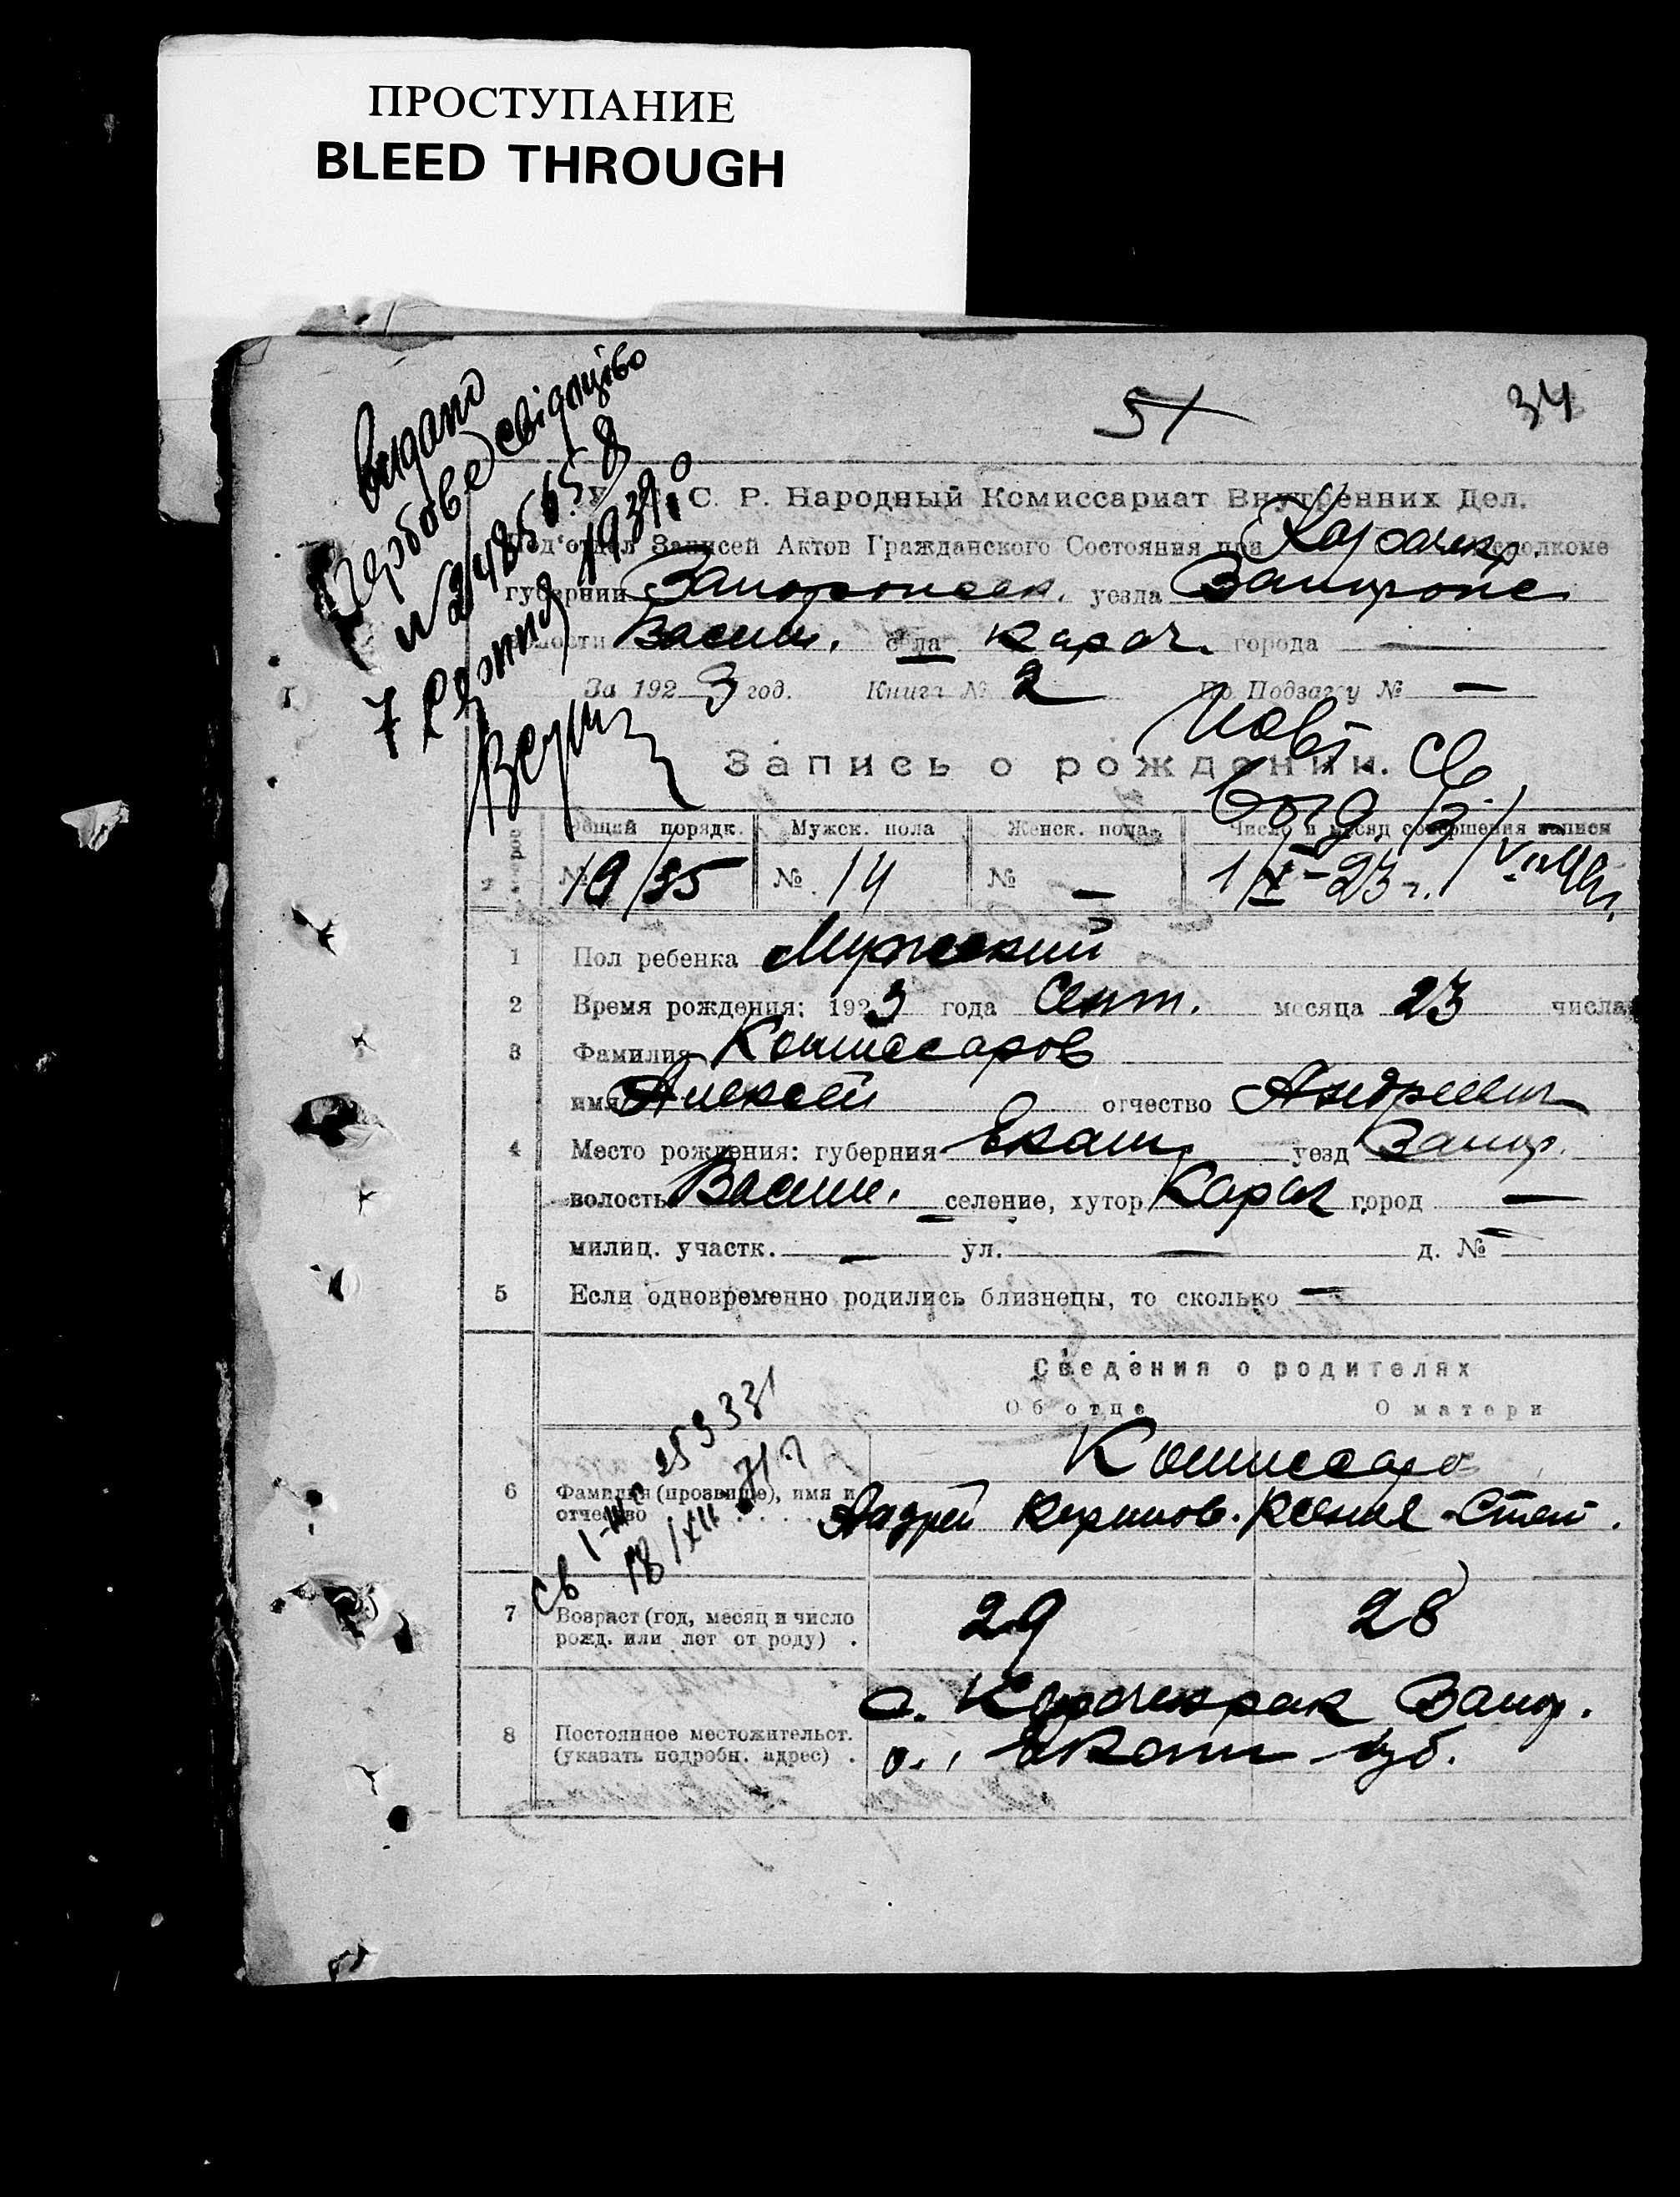 ПРОСТУПАНИЕ
BLEED THROUGH
51
34
видано
гербове свідоцтво
1939 р
С. Р. Народный Комиссариат Внутренних Дел.
Под'отдел Записей Актов Гражданского Состояния при Карачекр. исполкоме
губернии уезда Запорожс.
волости Васил. села Карач. города —
За 1923 год. Книга № 2 По Подзагсу № —
Повт. Св
Запись о рождении.
выд. 13/V-
Общий порядк. Мужск. пола Женск. пола Число и месяц совершения записи
№ 19/35 № 14 № — 1/X-23 г.
1 Пол ребенка Мужеский
2 Время рождения: 1923 года Сент. месяца 23 числа
3 Фамилия Комиссаров
имя Алексей отчество Андреевич
4 Место рождения: губерния Екат. уезд Запор.
волость Васил. селение, хутор Карач город —
милиц. участк. — ул. — д. № —
5 Если одновременно родились близнецы, то сколько —
Сведения о родителях
Об отце О матери
Комиссаро
6 Фамилия (прозвище), имя и
отчество
Андрей Кирилов. Ксения Степ.
Св 253331
18/XII
7 Возраст (год, месяц и число
рожд. или лет от роду) . 29 28
8 Постоянное местожительст.
(указать подробн. адрес) .
с. Карачекрак Запор.
у., Екат губ.